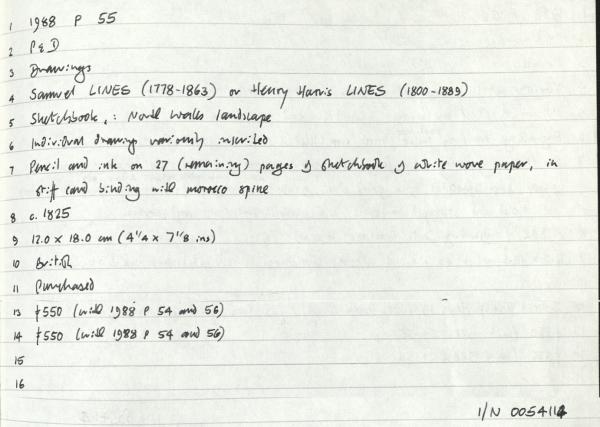 1 1988 P 55
2 P & D
3 Drawings
4 Samuel LINES (1778-1863) or Henry Harris LINES (1800-1889)
5 Sketchbook, : North Wales landscape
6 Individual drawings variously inscribed
7 Pencil and ink on 27 (remaining) pages of sketchbook of white wove paper, in
stiff card binding with morocco spine
8 c. 1825
9 12.0 x 18.0 cm (4 1/4 x 7 1/8 ins)
10 British
11 Purchased
13 £550 (with 1988 P 54 and 56)
14 £550 (with 1988 P 54 and 56)
15
16
I/N 0054114